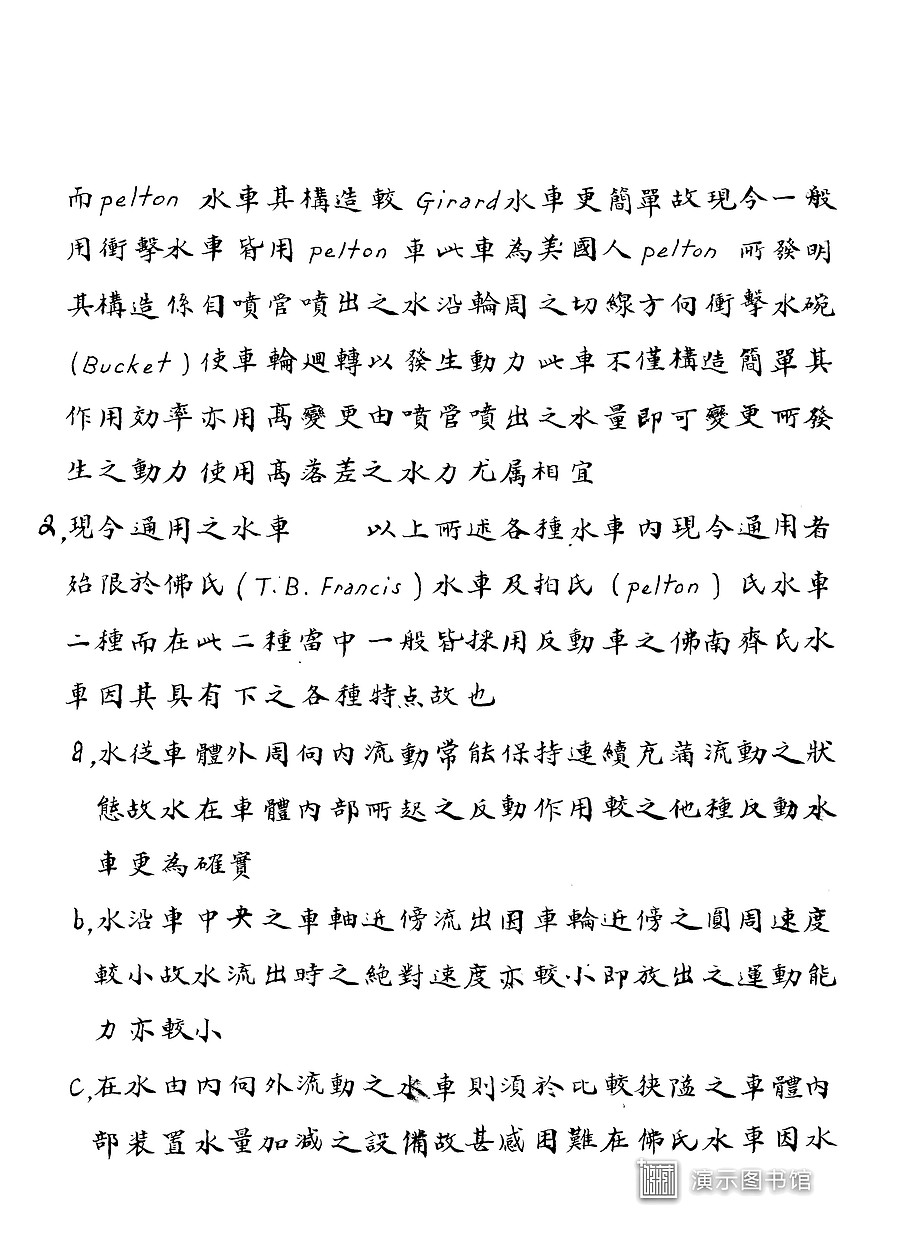 而pelton 水車其構造較 Girard水車更簡單故現今一般
用衝擊水車皆用 pelton 車此車為美國人 pelton 所發明
其構造係自噴管噴出之水沿輪周之切線方向衝擊水碗
(Bucket)使車輪廻轉以發生動力此車不僅構造簡單其
作用効率亦用高變更由噴管噴出之水量即可變更所發
生之動力使用高落差之水力尤属相宜
2,現今通用之水車 以上所述各種水車內現今通用者
殆限於佛氏(T.B.Francis)水車及柏氏(pelton)氏水車
二種而在此二種當中一般皆採用反動車之佛南齊氏水
車因其具有下之各種特点故也
a,水從車體外周向內流動常能保持連續充蒲流動之狀
態故水在車體內部所起之反動作用較之他種反動水
車更為確實
b,水沿車中央之車軸近傍流出因車輪近傍之圓周速度
較小故水流出時之絕對速度亦較小即放出之運動能
力亦較小
c,在水由內向外流動之水車則須於比較狹隘之車體內
部装置水量加減之設備故甚感困難在佛氏水車因水
演示图书馆